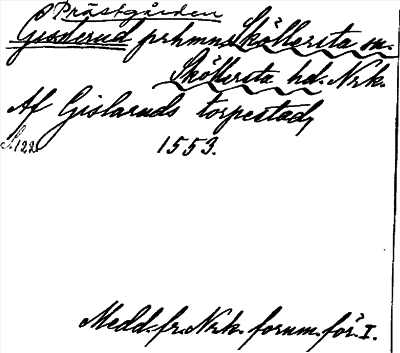 Prästgården
Gisslerud prhmn. Sköllersta sn.
Sköllersta hd. Nrk.
Af Gislaruds torpestad,
S. 122 1553.
Medd. fr. Nrk. fornm. för. I.